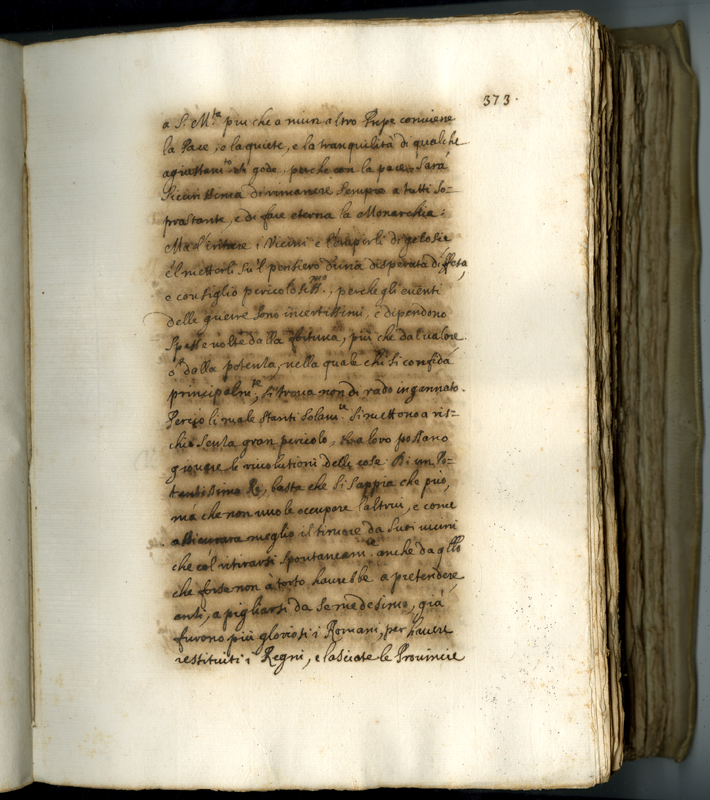 373.
a S. M.ta piu che a niun altro Prñpe conviene
la Pace, o la quiete, e la tranquilità di qualche
agiustam.to ch gode, perche con la pace, Sarà
Sicurissima di rimanere Sempre a tutti So=
prastante, e di fare eterna la Monarchia:
Ma l'irritare i Vicini e l'empirli di gelosia
è l metterli Su'l pensiero d'una disperata diffesa,
e consiglio pericolosiss.mo, perche gli eventi
delle guerre Sono incertissimi, e dipendono
Spesse volte dalla fortuna, più che dal valore
o' dalla potenza, nella quale chi Si confida
principalm.te, Si trova non di rado ingannato.
Perciò li male stanti Solam.te Si mettono a ris=
chio Senza gran pericolo, ch a loro possano
giovare le rivolutioni delle cose. Di un Po=
tentissimo Rè, basta che Si Sappia che può,
mà che non vuole occupare l'altrui, e come
assicurava meglio il timore da Suoi vicini
che col ritirarsi Spontaneam.te anche da qllo
che forse non a torto haurebbe a pretendere
anzi, a pigliarsi da Se medesimo, già
furono più gloriosi i Romani, per havere
restituiti i Regni, e lasciate le Provincie